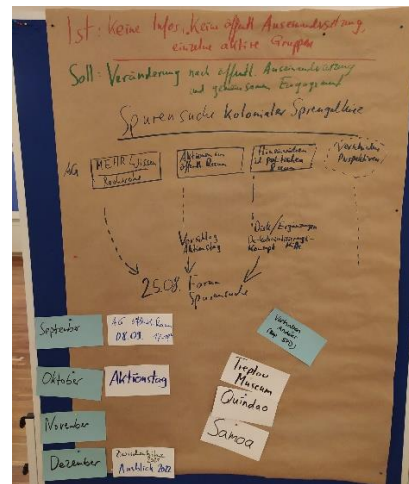 Ist: Keine Infos, Keine öffentl. Auseinandersetzung,
einzelne aktive Gruppen
Soll: Veränderung nach öffentl. Auseinandersetzung
und gemeinsamem Engagement
Spurensuche kolonialer
AG
MEHR Wissen
Recherche
Aktionen im
öffentl. Raum
Hineinwirken
in politischen
Raum
Perspektiven
Vorschlag
Aktionstag
Ergänzungen
25.08. Forum
Spurensuche
September
AG öffentl. Raum
08.09.
Oktober
Aktionstag
November
Dezember
Ausblick 2022
Treptow
Museum
Quindoo
Samoa